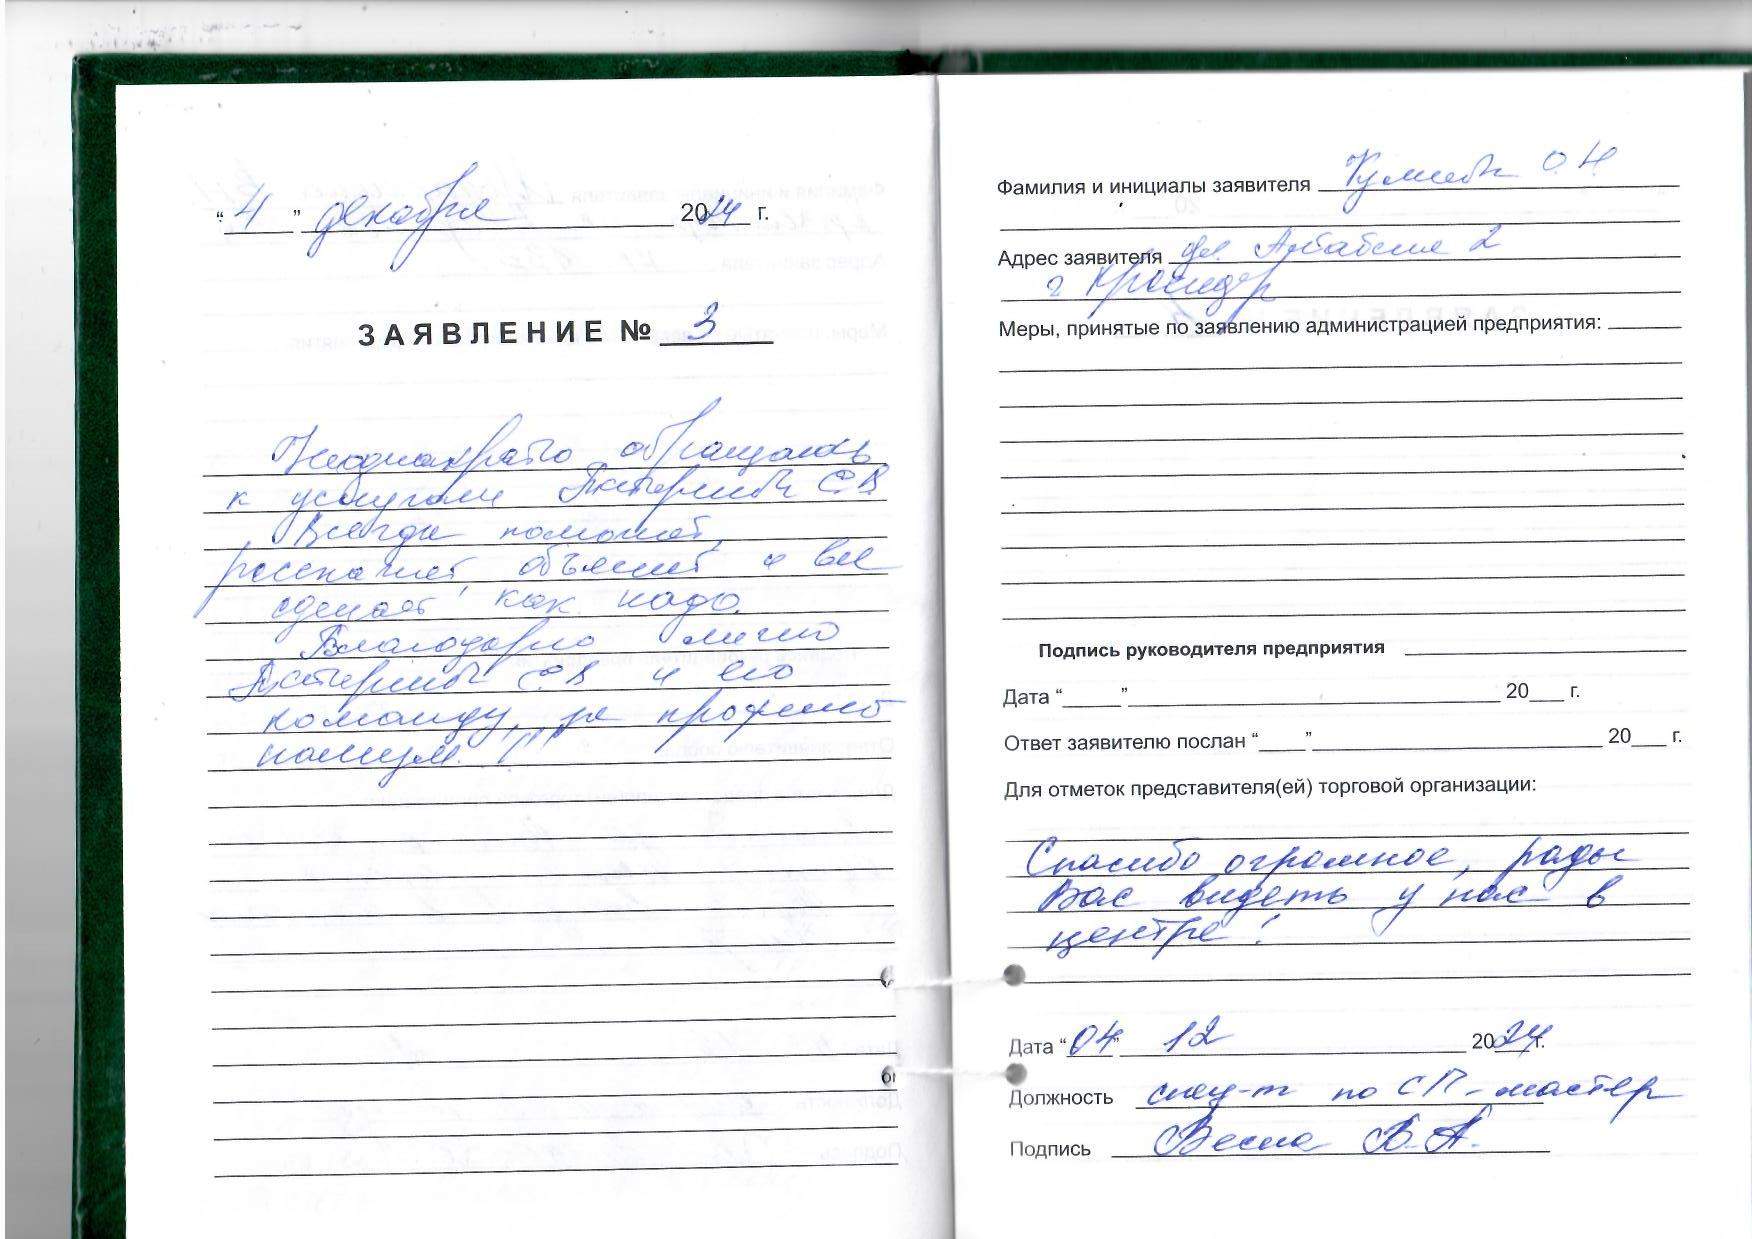 “ 4 ” декабря 2024 г.
ЗАЯВЛЕНИЕ № 3
Неоднократно обращалась
к услугам С.В
Всегда поможет,
расскажет, объяснит и все
сделает как надо.
Благодарю лично
С.В и его
команду, за профессио
нализм!!!
Фамилия и инициалы заявителя О Н
Адрес заявителя ул. 2
г Краснодар
Меры, принятые по заявлению администрацией предприятия:
Подпись руководителя предприятия
Дата “ ” 20 г.
Ответ заявителю послан “ ” 20 г.
Для отметок представителя(ей) торговой организации:
Спасибо огромное, рады
Вас видеть у нас в
центре!
Дата “04” 12 2024г.
Должность спец-т по СП-мастер
Подпись Весна В.А.